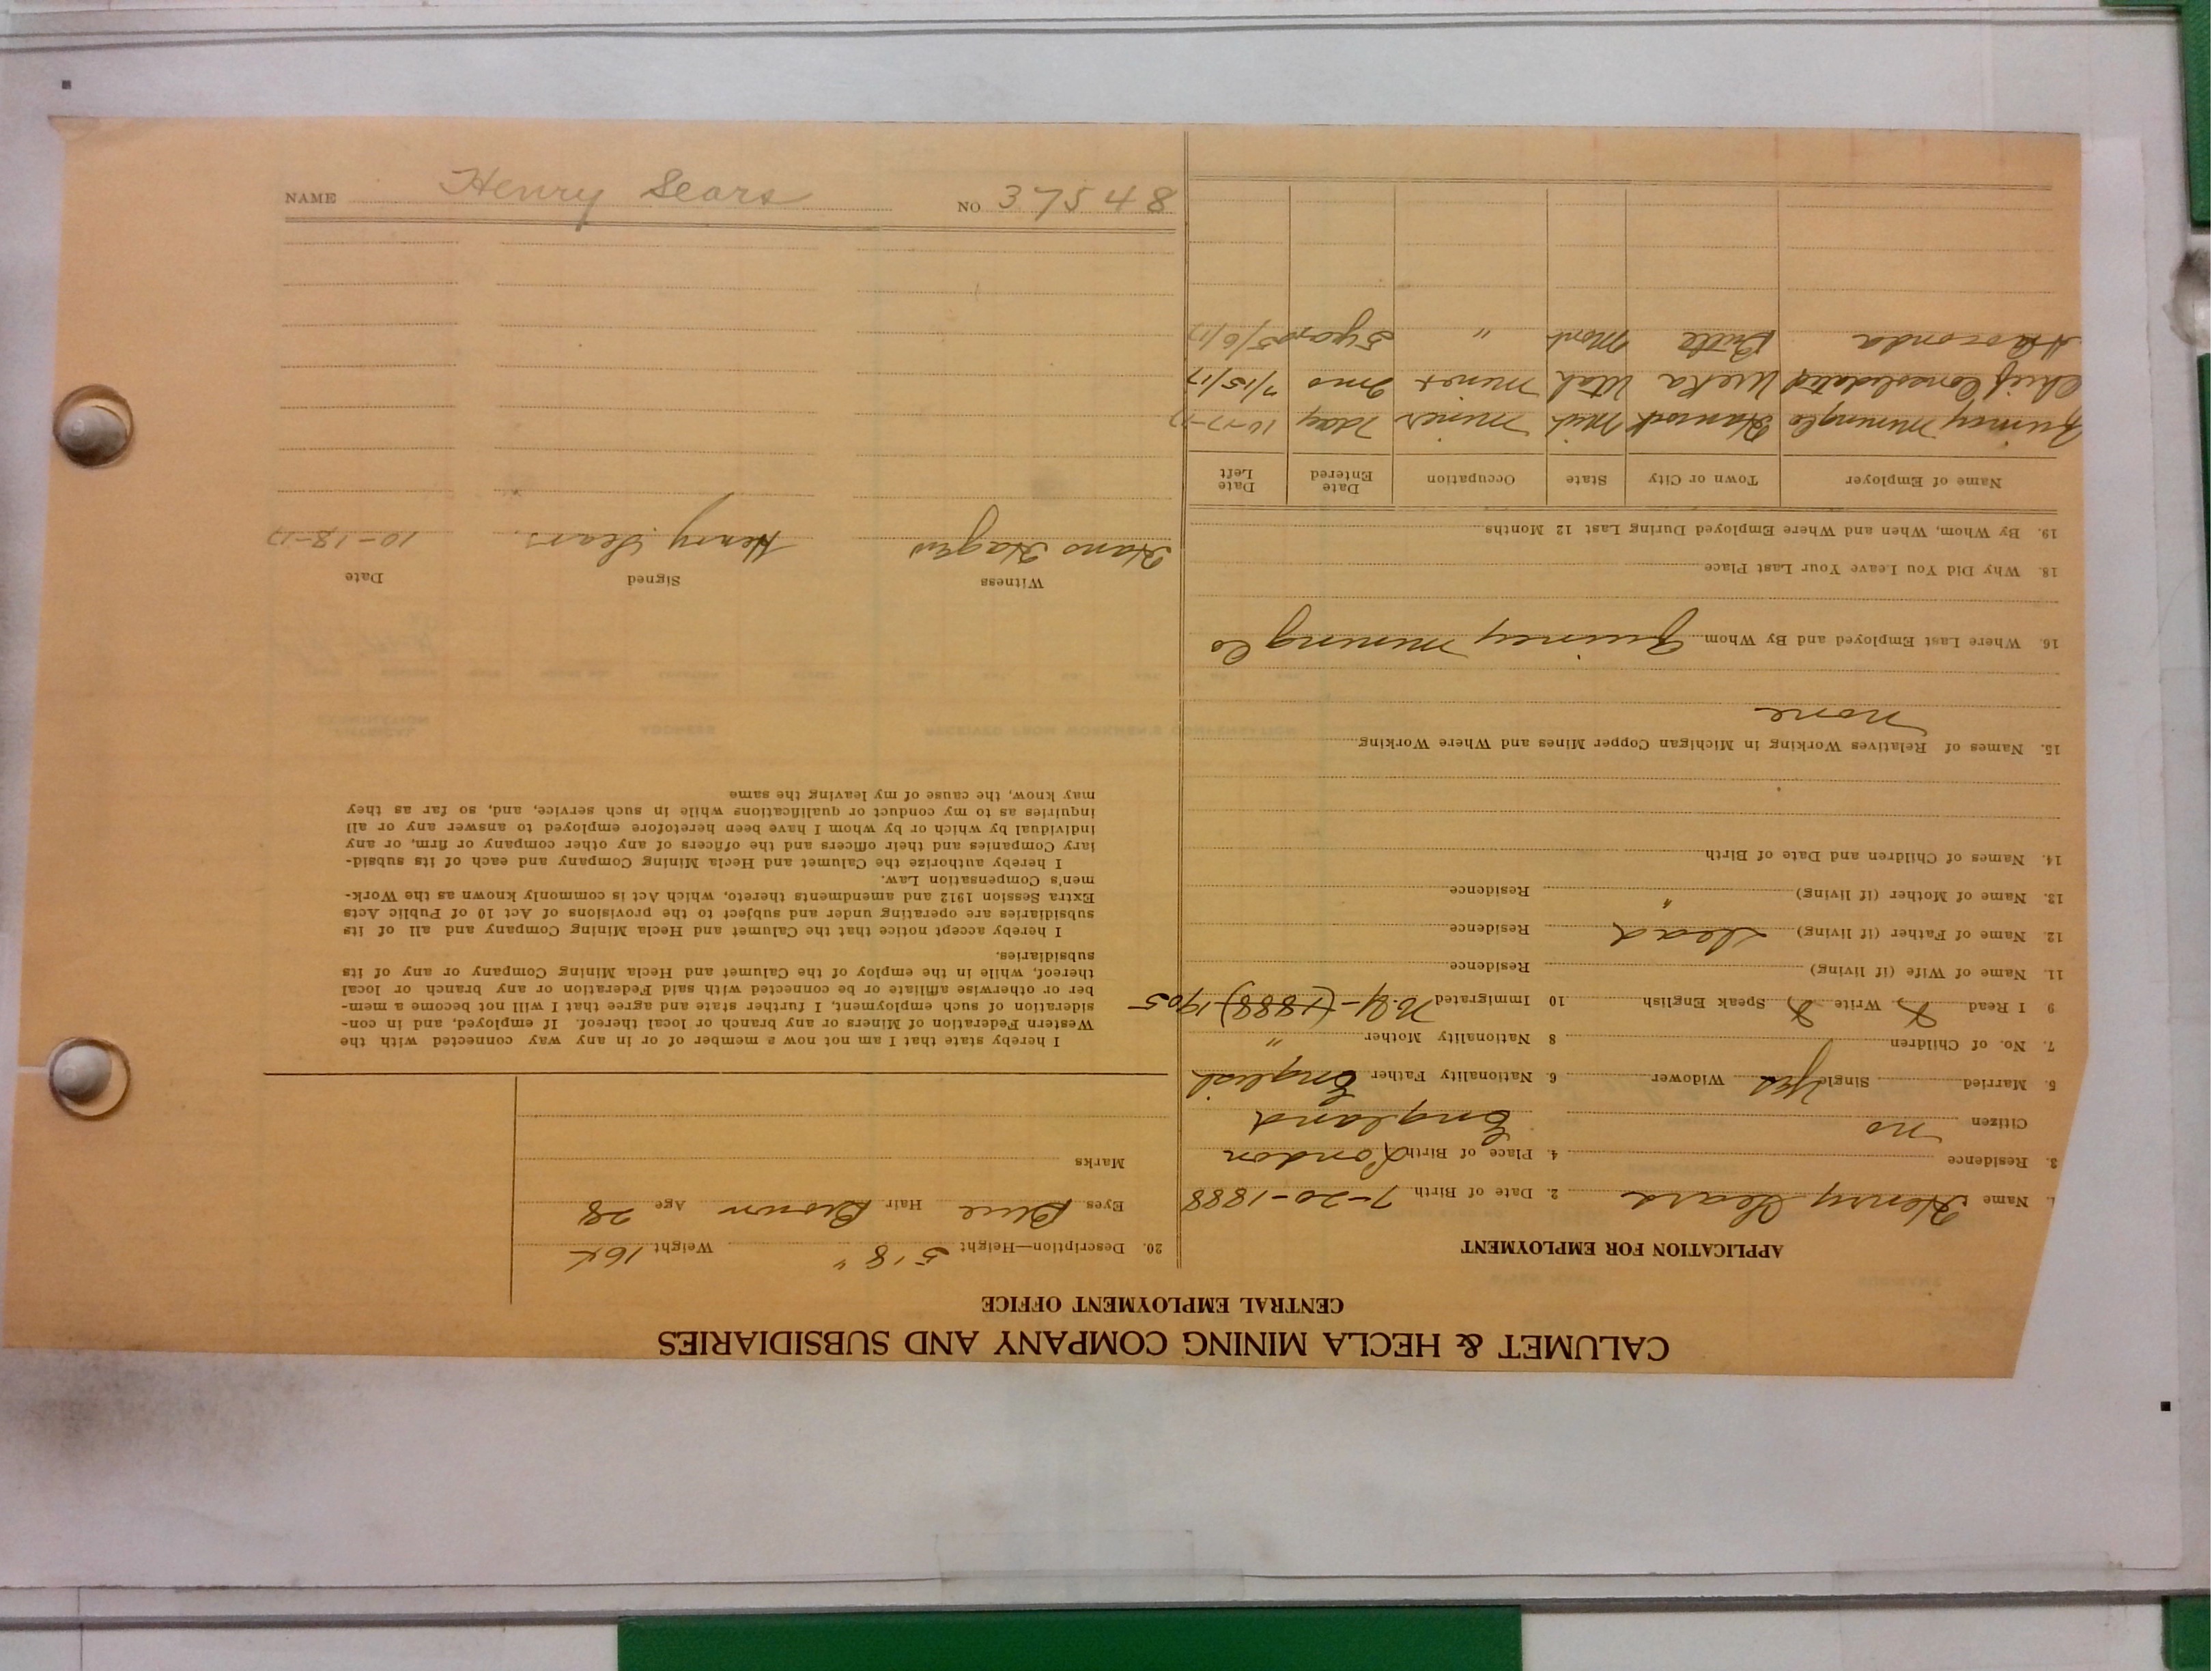 CALUMET & HECLA MINING COMPANY AND SUBSIDIARIES
CENTRAL EMPLOYMENT OFFICE
APPLICATION FOR EMPLOYMENT
1. Name Henry Sears 2. Date of Birth 7-20-1888
3. Residence 4. Place of Birth London
Citizen no England
5. Married Single Yes Widower 6. Nationality Father English
7. No. of Children 8 Nationality Mother "
9 I Read Write Speak English 10 Immigrated N.Y- (1888) 1905
11. Name of Wife (if living) Residence
12. Name of Father (if living) dead Residence
13. Name of Mother (if living) " Residence
14. Names of Children and Date of Birth
15. Names of Relatives Working in Michigan Copper Mines and Where Working
none
16. Where Last Employed and By Whom Quincy Mining Co
18. Why Did You Leave Your Last Place
19. By Whom, When and Where Employed During Last 12 Months
Name of Employer Town or City State Occupation Date Entered Date Left
Quincy Mining Co Hancock Mich Miner 1 day 10-17-17
Chief Consolidated Utah Miner 7/15/17
Anaconda Butte Mont " 5 years 5/6/17
20. Description—Height 5'8" Weight
Eyes Blue Hair Brown Age 28
Marks
I hereby state that I am not now a member of or in any way connected with the
Western Federation of Miners or any branch or local thereof. If employed, and in con-
sideration of such employment, I further state and agree that I will not become a mem-
ber or otherwise affiliate or be connected with said Federation or any branch or local
thereof, while in the employ of the Calumet and Hecla Mining Company or any of its
subsidiaries.
I hereby accept notice that the Calumet and Hecla Mining Company and all of its
subsidiaries are operating under and subject to the provisions of Act 10 of Public Acts
Extra Session 1912 and amendments thereto, which Act is commonly known as the Work-
men's Compensation Law.
I hereby authorize the Calumet and Hecla Mining Company and each of its subsid-
iary Companies and their officers and the officers of any other company or firm, or any
individual by which or by whom I have been heretofore employed to answer any or all
inquiries as to my conduct or qualifications while in such service, and, so far as they
may know, the cause of my leaving the same
Witness Signed Date
Hans Hagen Henry Sears. 10-18-17
NAME Henry Sears NO 37548